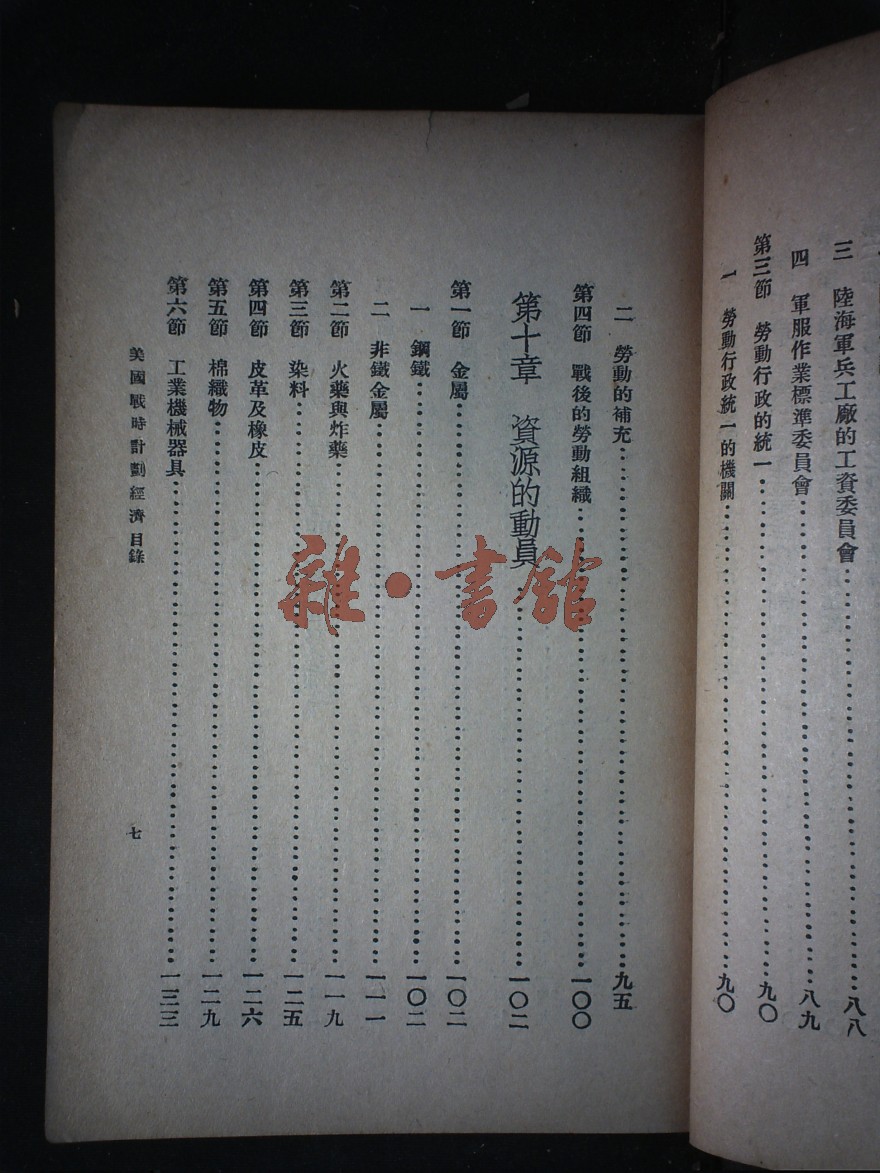 三 陸海軍兵工廠的工資委員會……八八
四 軍服作業標準委員會……八九
第三節 勞動行政的統一……九〇
一 勞動行政統一的機關……九〇
二 勞動的補充……九五
第四節 戰後的勞動組織……一〇〇
第十章 資源的動員……一〇二
第一節 金屬……一〇二
一 鋼鐵……一〇二
二 非鐵金屬……一一一
第二節 火藥與炸藥……一一九
第三節 染料……一二五
第四節 皮革及橡皮……一二六
第五節 棉織物……一二九
第六節 工業機械器具……一三三
美國戰時計劃經濟 目錄
七
雜·書館